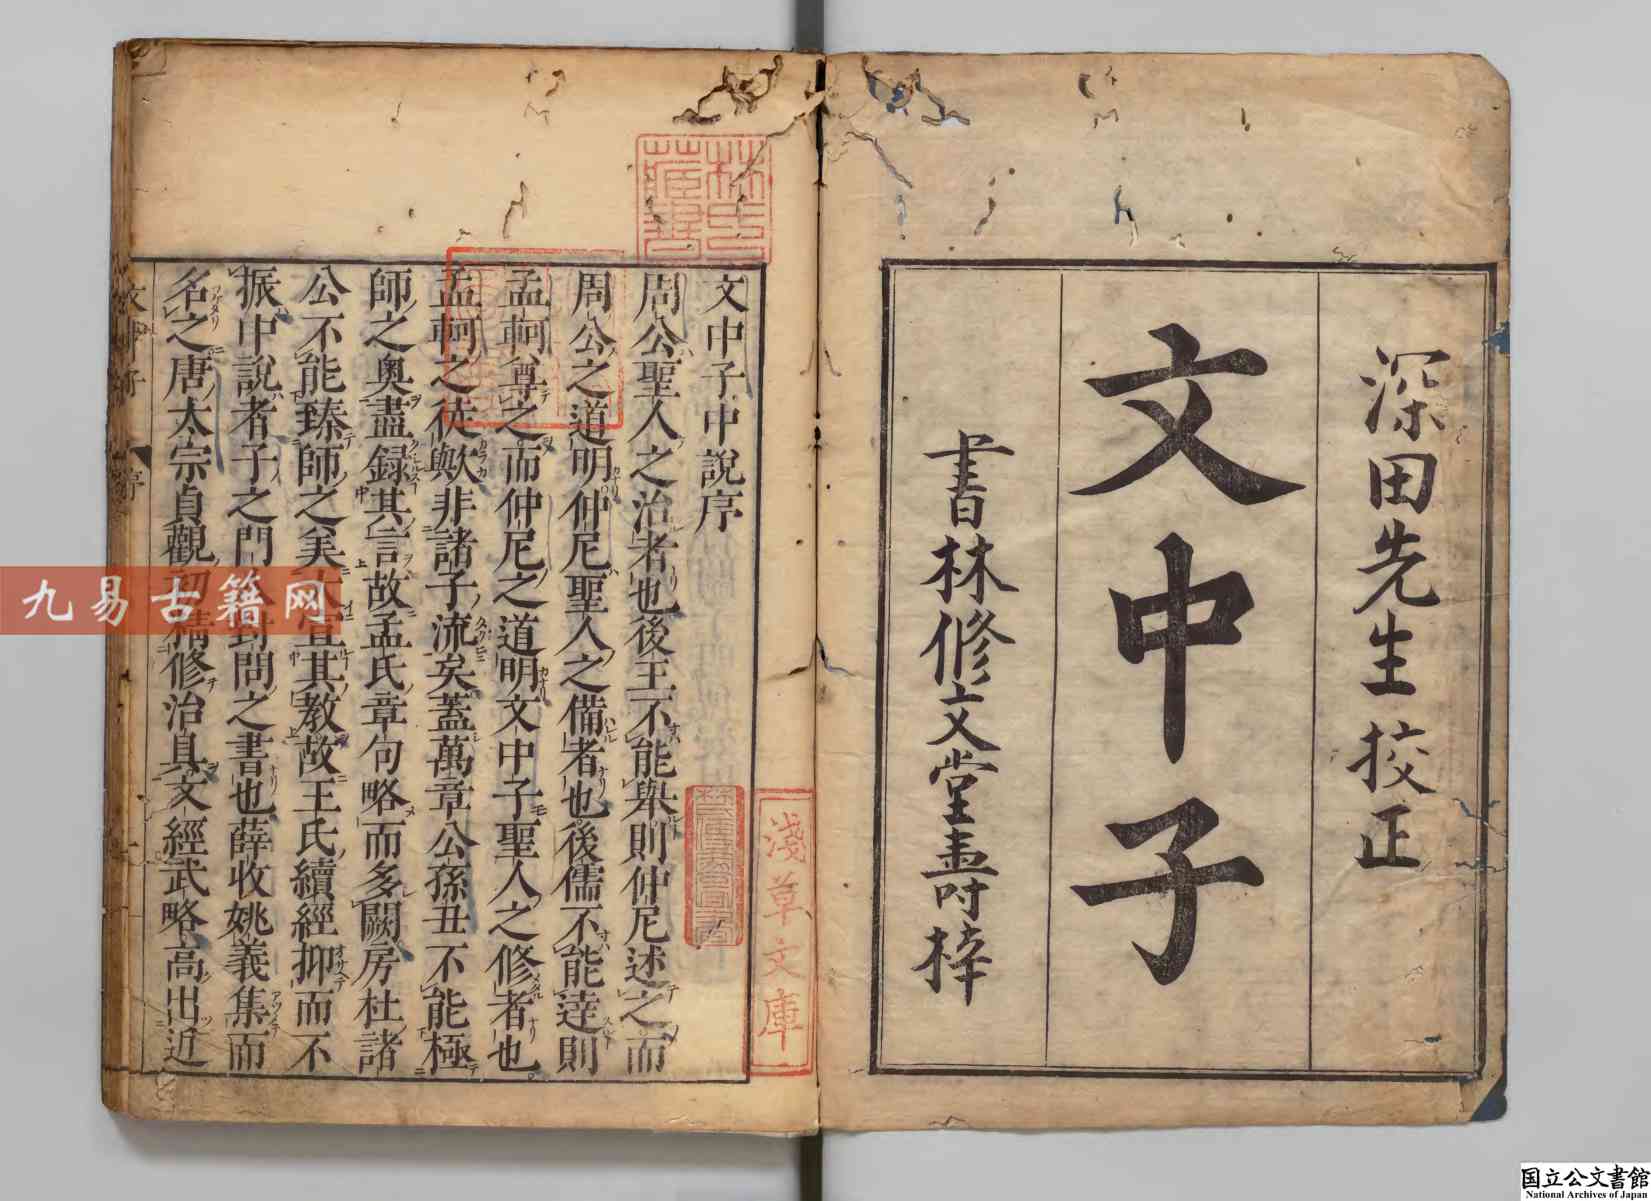 深田先生校正
文中子
書林修文堂壽時梓
文中子中說序
周公聖人之治者也後王不能舉則仲尼述之而
周公之道明仲尼聖人之備者也後儒不能達則
孟軻尊之而仲尼之道明文中子聖人之修者也
孟軻之徒歟非諸子流矣蓋萬章公孫丑不能極
師之奧盡録其言故孟氏章句略而多闕房杜諸
公不能臻師之美大宣其教故王氏續經抑而不
振中說者子之門人對問之書也薛收姚義集而
名之唐太宗貞觀初精修治具文經武略高出近
林氏藏書
淺草文庫
九易古籍网
国立公文書館
National Archives of Japan